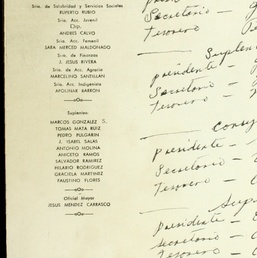 Srio. de Salubridad y Servicios Sociales
RUPERTO RUBIO
Srio. Acc. Juvenil
Dip.
ANDRES CALVO
Srio. Acc. Femenil
SARA MERCED MALDONADO
Srio. de Finanzas
J. JESUS RIVERA
Srio. de Acc. Agraria
MARCELINO SANTILLAN
Srio. Acc. Indigenista
APOLINAR BARRON
Suplentes:
MARCOS GONZALEZ S.
TOMAS MATA RUIZ
PEDRO PULGARIN
J. YSABEL SALAS
ANTONIO MOLINA
ANICETO RAMOS
SALVADOR RAMIREZ
HILARIO RODRIGUEZ
GRACIELA MARTINEZ
FAUSTINO FLORES
Oficial Mayor
JESUS MENDEZ CARRASCO
Secretario -
Tesorero
Suplen
presidente -
Secretario -
Tesorero
Presidente -
Secretario -
Tesorero -
Presidente -
Secretario -
Tesorero -